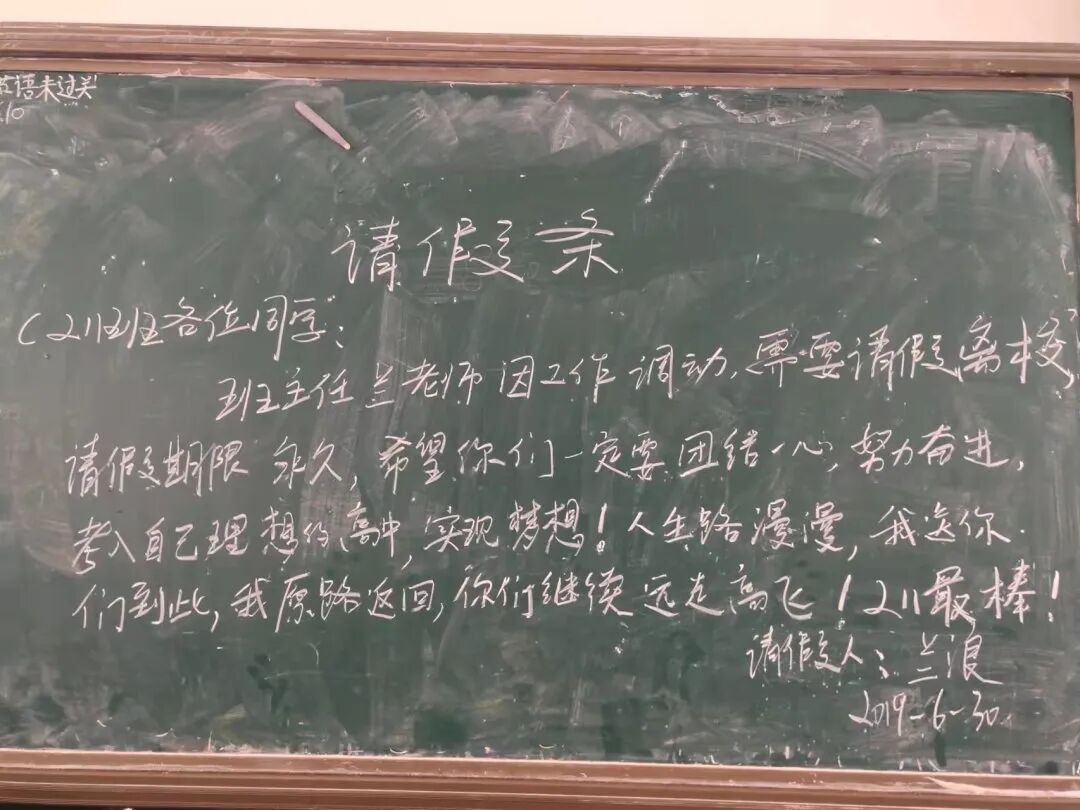 英语未过关
.10
请假条
211班各位同学：
班主任兰老师因工作调动，需要请假离校，
请假期限 永久，希望你们一定要团结一心，努力奋进，
考入自己理想的高中，实现梦想！人生路漫漫，我送你
们到此，我原路返回，你们继续远走高飞！211最棒！
请假人：兰浪
2019-6-30